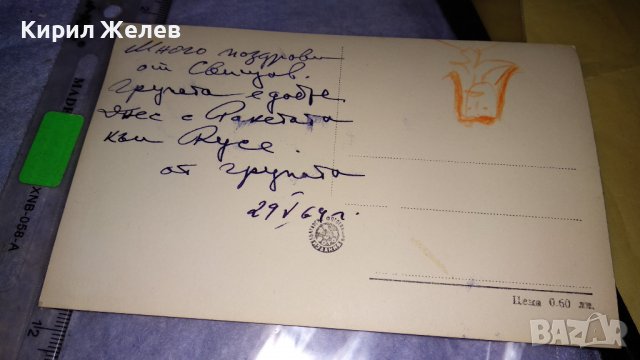 Кирил Желев
Много поздрави
от Свищов.
Групата е добре.
Днес с Ракетата
към Русе.
от групата
29 V 69 г.
Цена 0.60 лв.
MADE
XNB-058-A
1/2
BAZAR
bg